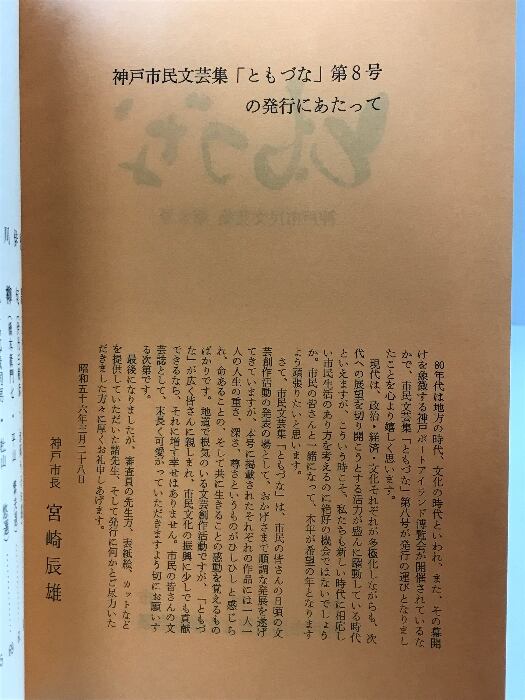 神戸市民文芸集「ともづな」第8号
の発行にあたって
80年代は地方の時代、文化の時代といわれ、また、その幕開
けを象徴する神戸ポートアイランド博覧会が開催されているな
かで、市民文芸集「ともづな」第八号が発行の運びとなりまし
たことを心より嬉しく思います。
現代は、政治・経済・文化それぞれが多極化しながらも、次
代への展望を切り開こうとする活力が盛んに躍動している時代
といえますが、こういう時こそ、私たちも新しい時代に相応し
い市民生活のあり方を考えるのに絶好の機会ではないでしょう
か。市民の皆さんと一緒になって、本年が希望の年となります
よう頑張りたいと思います。
さて、市民文芸集「ともづな」は、市民の皆さんの日頃の文
芸創作活動の発表の場として、おかげさまで順調な発展を遂げ
てきていますが、本号に掲載されたそれぞれの作品には一人一
人の人生の重さ、深さ、尊さというものがひしひしと感じら
れ、命あることの、そして共に生きることの感動を覚えるもの
ばかりです。地道で根気のいる文芸創作活動ですが、「ともづ
な」が広く皆さんに親しまれ、市民文化の振興に少しでも貢献
できるなら、それに増す幸せはありません。市民の皆さんの文
芸誌として、末長く可愛がっていただきますよう切にお願いす
る次第です。
最後になりましたが、審査員の先生方、表紙絵、カットなど
を提供していただいた諸先生、そして発行に何かとご尽力いた
だきました方々に厚くお礼申しあげます。
昭和五十六年三月二十八日
神戸市長 宮崎辰雄
川柳